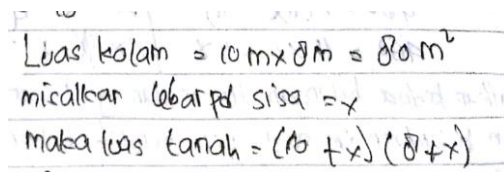 Luas kolam = 10 m x 8 m = 80 m²
misalkan lebar pd sisa = x
maka luas tanah = (10 + x) (8 + x)